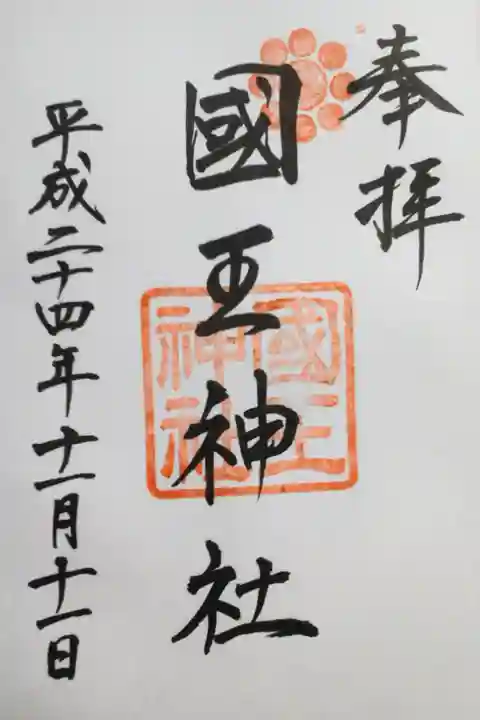 奉拝
國王神社
國王
神社
平成二十四年十一月十一日